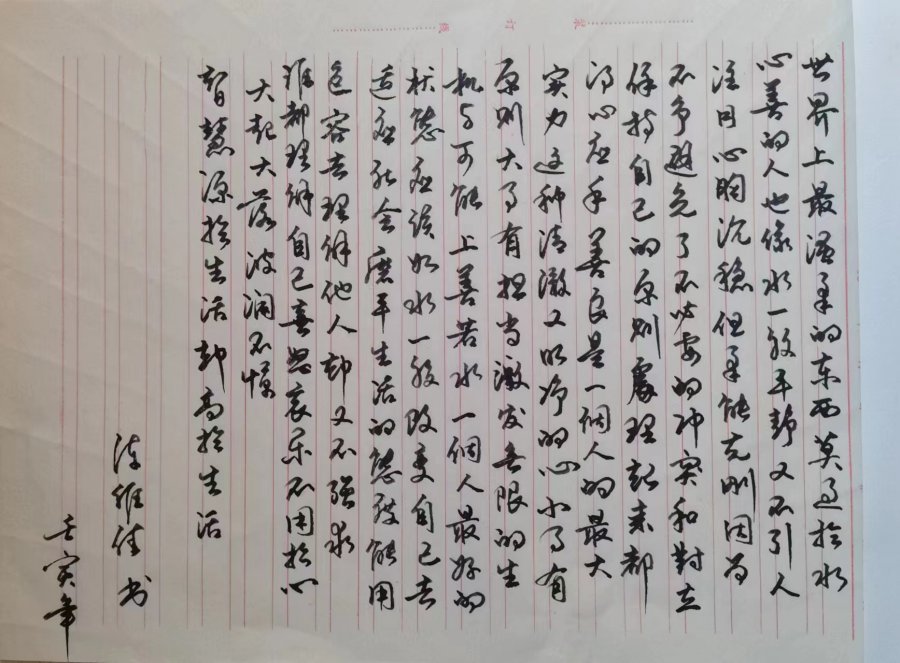 世界上最温柔的东西莫过於水
心善的人也像水一般平静又不引人
注目心胸沉稳但柔能克刚因为
不争避免了不必要的冲突和對立
保持自己的原则處理起来都
得心应手善良是一個人的最大
实力这种清澈又明净的心小事有
原则大事有担当激发無限的生
机与可能上善若水一個人最好的
状态应该如水一般改变自己去
适应融会磨平生活的态度能用
包容去理解他人却又不强求
谁都理解自己喜怒哀乐不困於心
大起大落波澜不惊
智慧源於生活却高於生活
陈維佳书
壬寅年